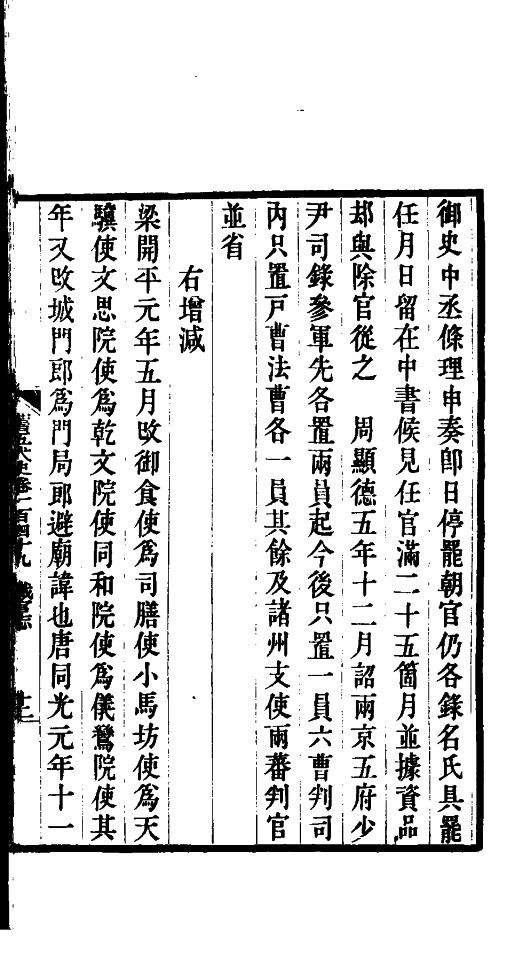 御史中丞條理申奏卽日停罷朝官仍各錄名氏具罷
任月日留在中書候見任官滿二十五箇月並據資品
却與除官從之　周顯德五年十二月詔兩京五府少
尹司錄參軍先各置兩員起今後只置一員六曹判司
內只置戸曹法曹各一員其餘及諸州支使兩蕃判官
並省
右增減
梁開平元年五月改御食使爲司膳使小馬坊使爲天
驥使文思院使爲乾文院使同和院使爲儀鸞院使其
年又改城門郎爲門局郎避廟諱也唐同光元年十一
舊五代史卷一百四十九　職官志　十二